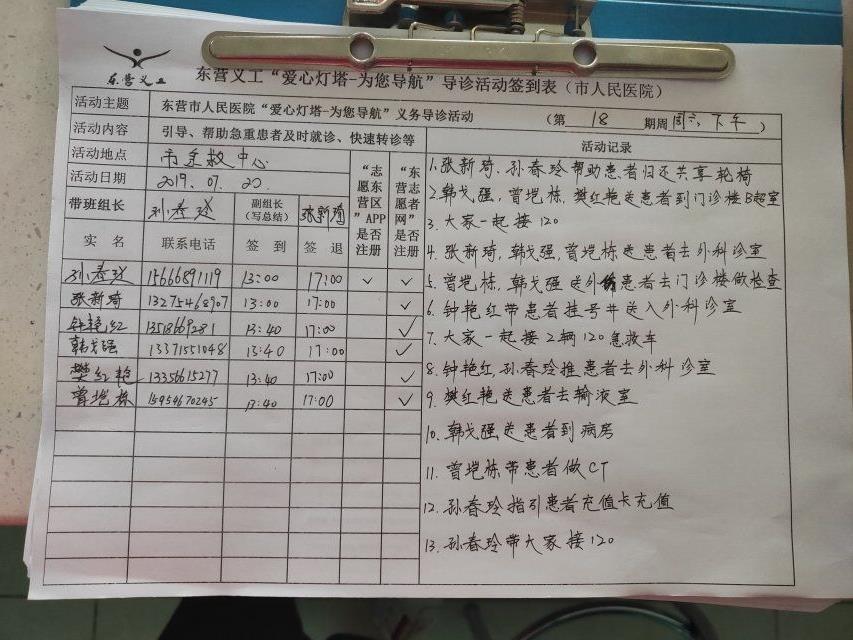 东营义工
东营义工“爱心灯塔-为您导航”导诊活动签到表（市人民医院）
活动主题 东营市人民医院“爱心灯塔-为您导航”义务导诊活动 （第 18 期周六下午）
活动内容 引导、帮助急重患者及时就诊、快速转诊等
活动地点 市急救中心
活动日期 2019.07.20.
带班组长 孙春玲 副组长（写总结） 张新琦
实 名 联系电话 签 到 签 退 “志愿东营区”APP是否注册 “东营志愿者网”是否注册
孙春玲 15666891119 13:00 17:00 ✓ ✓
张新琦 13275468907 13:00 17:00 ✓
钟艳红 13518669281 13:40 17:00 ✓
韩戈强 13371551048 13:40 17:00 ✓
樊红艳 13356615277 13:40 17:00 ✓
曾垲栋 15954670245 13:40 17:00 ✓
活动记录
1.张新琦、孙春玲帮助患者归还共享轮椅
2.韩戈强,曾垲栋,樊红艳送患者到门诊楼B超室
3.大家一起接120
4.张新琦,韩戈强,曾垲栋送患者去外科诊室
5.曾垲栋,韩戈强送外伤患者去门诊楼做检查
6.钟艳红带患者挂号并送入外科诊室
7.大家一起接2辆120急救车
8.钟艳红,孙春玲推患者去外科诊室
9.樊红艳送患者去输液室
10.韩戈强送患者到病房
11.曾垲栋带患者做CT
12.孙春玲指引患者充值卡充值
13.孙春玲带大家接120